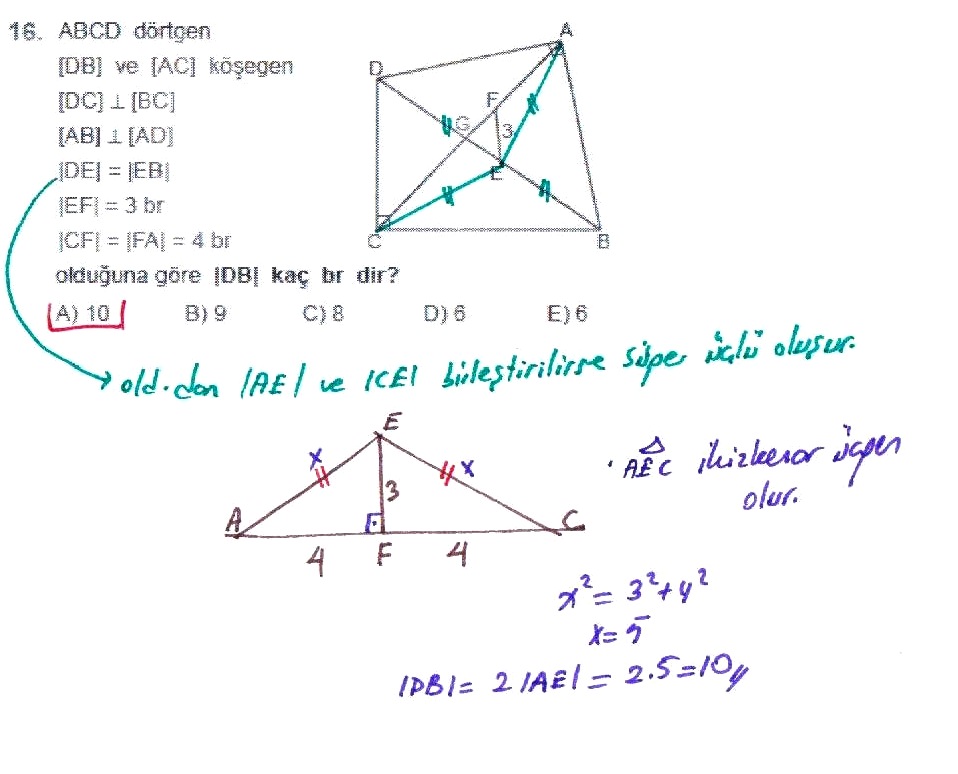 16. ABCD dörtgen
[DB] ve [AC] köşegen
[DC] ⊥ [BC]
[AB] ⊥ [AD]
|DE| = |EB|
|EF| = 3 br
|CF| = |FA| = 4 br
olduğuna göre |DB| kaç br dir?
A) 10 B) 9 C) 8 D) 6 E) 6
A
D
F
G
3
x
E
C
B
old.dan |AE| ve |CE| birleştirilirse süper üçlü oluşur.
E
x x
3
A F C
4 4
AEC ikizkenar üçgen
olur.
x² = 3² + 4²
x = 5
|DB| = 2|AE| = 2.5 = 10//